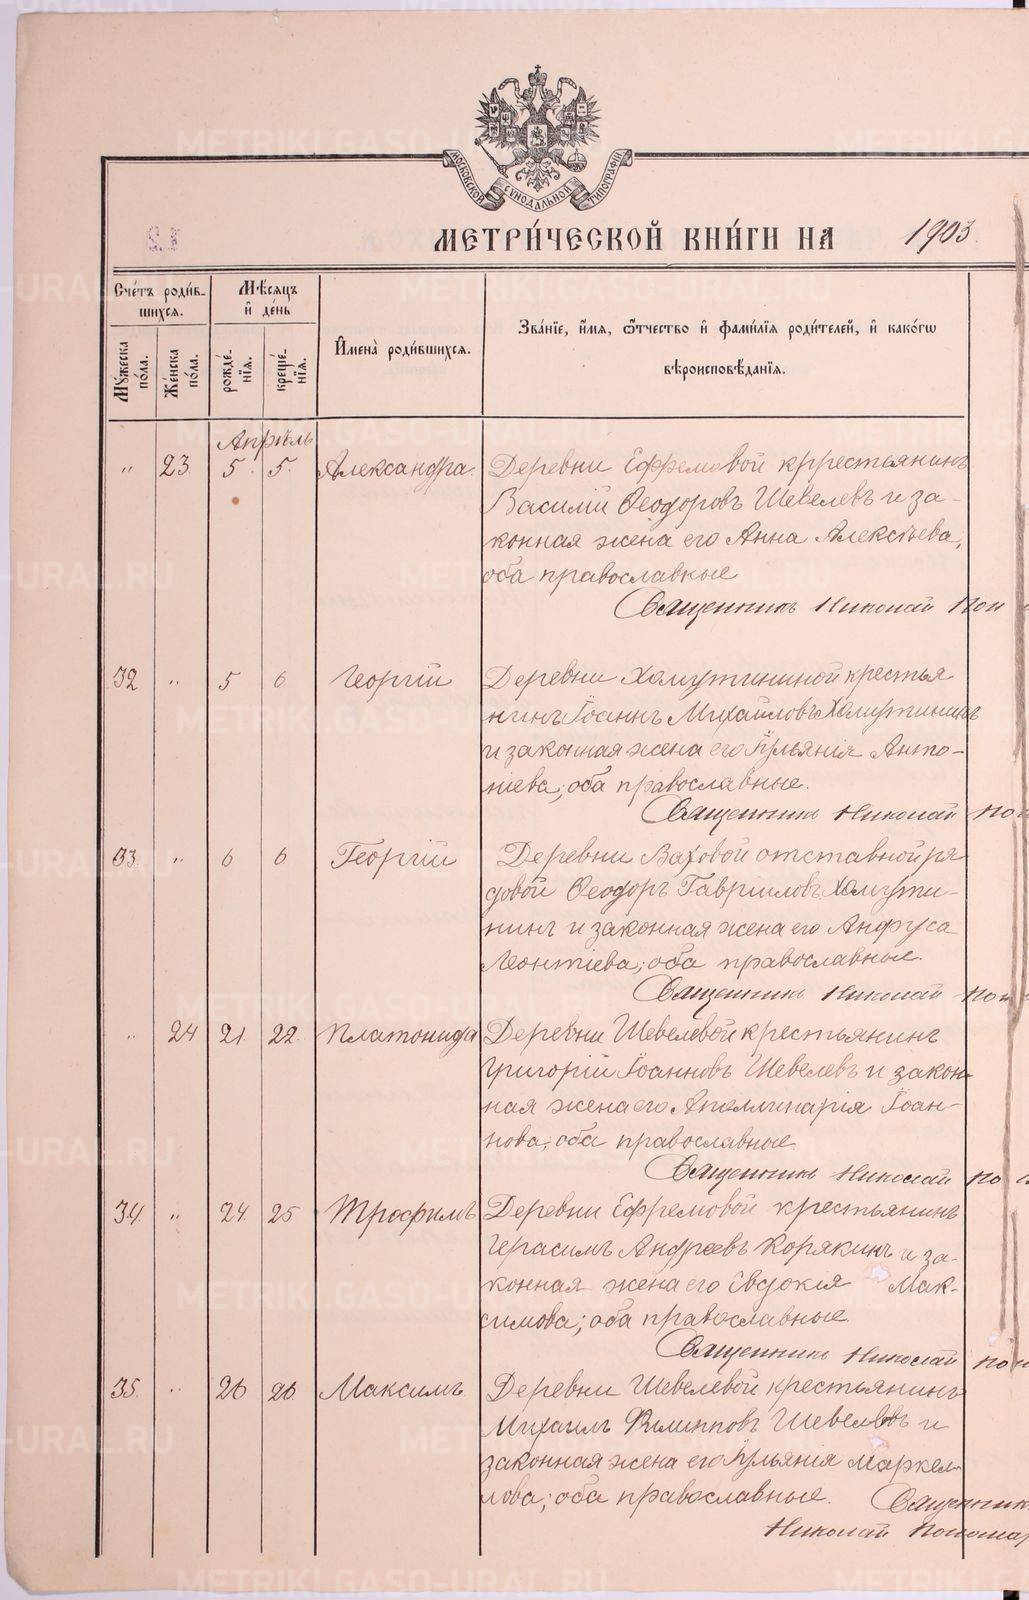 МОСКОВСКОЙ СѴНОДАЛЬНОЙ ТИПОГРАФІИ
12
МЕТРИ́ЧЕСКОЙ КНИ́ГИ НА 1903.
Сче́тъ роди́в-
шихся.
Мѣсяцъ
и҆ де́нь
Мꙋ́жеска
по́ла.
Же́нска
по́ла.
рожде́-
нїѧ.
креще́-
нїѧ.
И҆мена̀ роди́вшихся.
Зва́нїе, и҆́мя, ѻ҆́тчество и҆ фами́лїя роди́телей, и҆ како́гѡ
вѣроисповѣ́данїя.
Апрѣль
" 23. 5. 5. Александра. Деревни Ефремовой кррестьянинъ
Василій Ѳеодоровъ Шевелевъ и за-
конная жена его Анна Алексѣева,
оба православные
Священникъ Николай Пон
32 " 5 6 Георгій Деревни Хомутининой крестья
нинъ Іоаннъ Михайловъ Хомутининъ
и законная жена его Іульянія Анто-
ніева; оба православные.
Священникъ Николай По
33. " 6 6 Георгій Деревни Ваховой отставной ря
довой Ѳеодоръ Гавріиловъ Хомути-
нинъ и законная жена его Анфуса
Леонтіева; оба православные.
Священникъ Николай Пон
" 24 21 22 Платонида Деревни Шевелевой крестьянинъ
Григорій Іоанновъ Шевелевъ и закон-
ная жена его Аполлинарія Іоан-
нова; оба православные.
Священникъ Николай По
34. " 24. 25 Трофимъ Деревни Ефремовой крестьянинъ
Герасимъ Андреевъ Корякинъ и за-
конная жена его Евдокія Мак-
симова; оба православные.
Священникъ Николай Пон
35. " 26 26 Максимъ Деревни Шевелевой крестьянинъ
Михаилъ Филипповъ Шевелевъ и
законная жена его Іульянія Маркел-
лова; оба православные. Священникъ
Николай Пономар